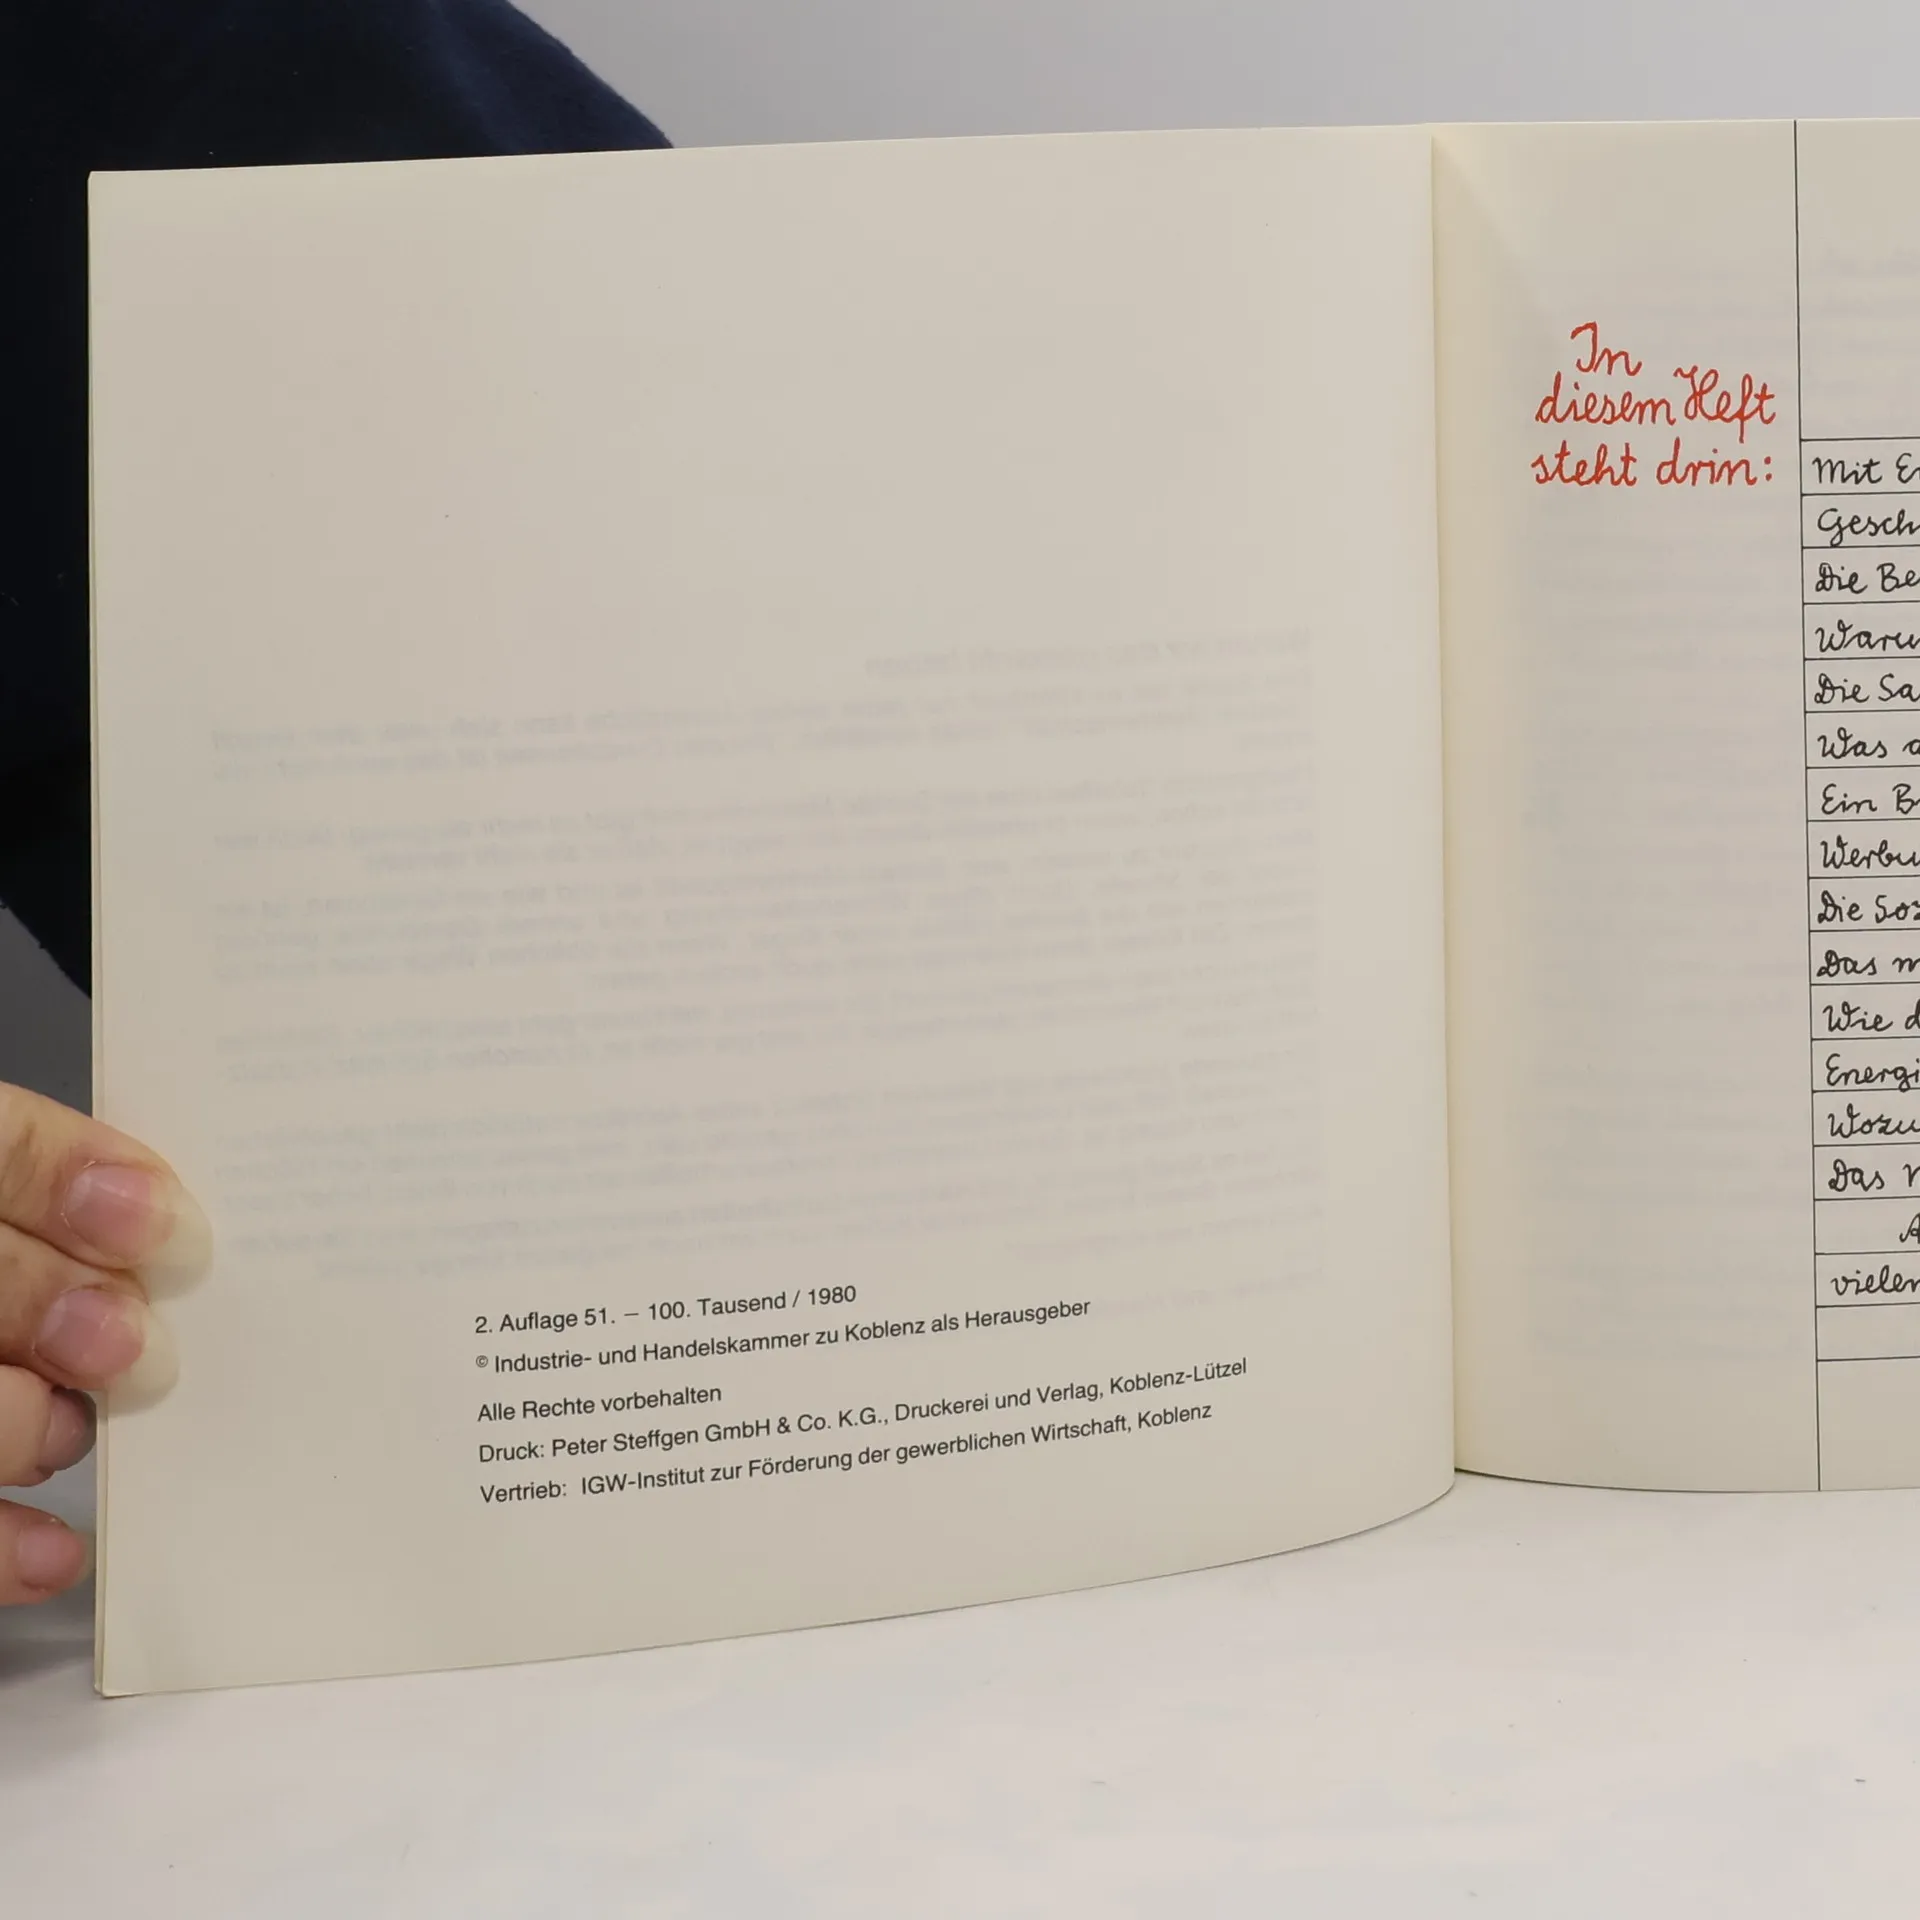 2. Auflage 51. – 100. Tausend / 1980
© Industrie- und Handelskammer zu Koblenz als Herausgeber
Alle Rechte vorbehalten
Druck: Peter Steffgen GmbH & Co. K.G., Druckerei und Verlag, Koblenz-Lützel
Vertrieb: IGW-Institut zur Förderung der gewerblichen Wirtschaft, Koblenz
In
diesem Heft
steht drin:
Mit
Gesch
Die Be
Waru
Die Sa
Was
Ein B
Werbu
Die Soz
Das m
Wie d
Energi
Wozu
Das
A
vielen